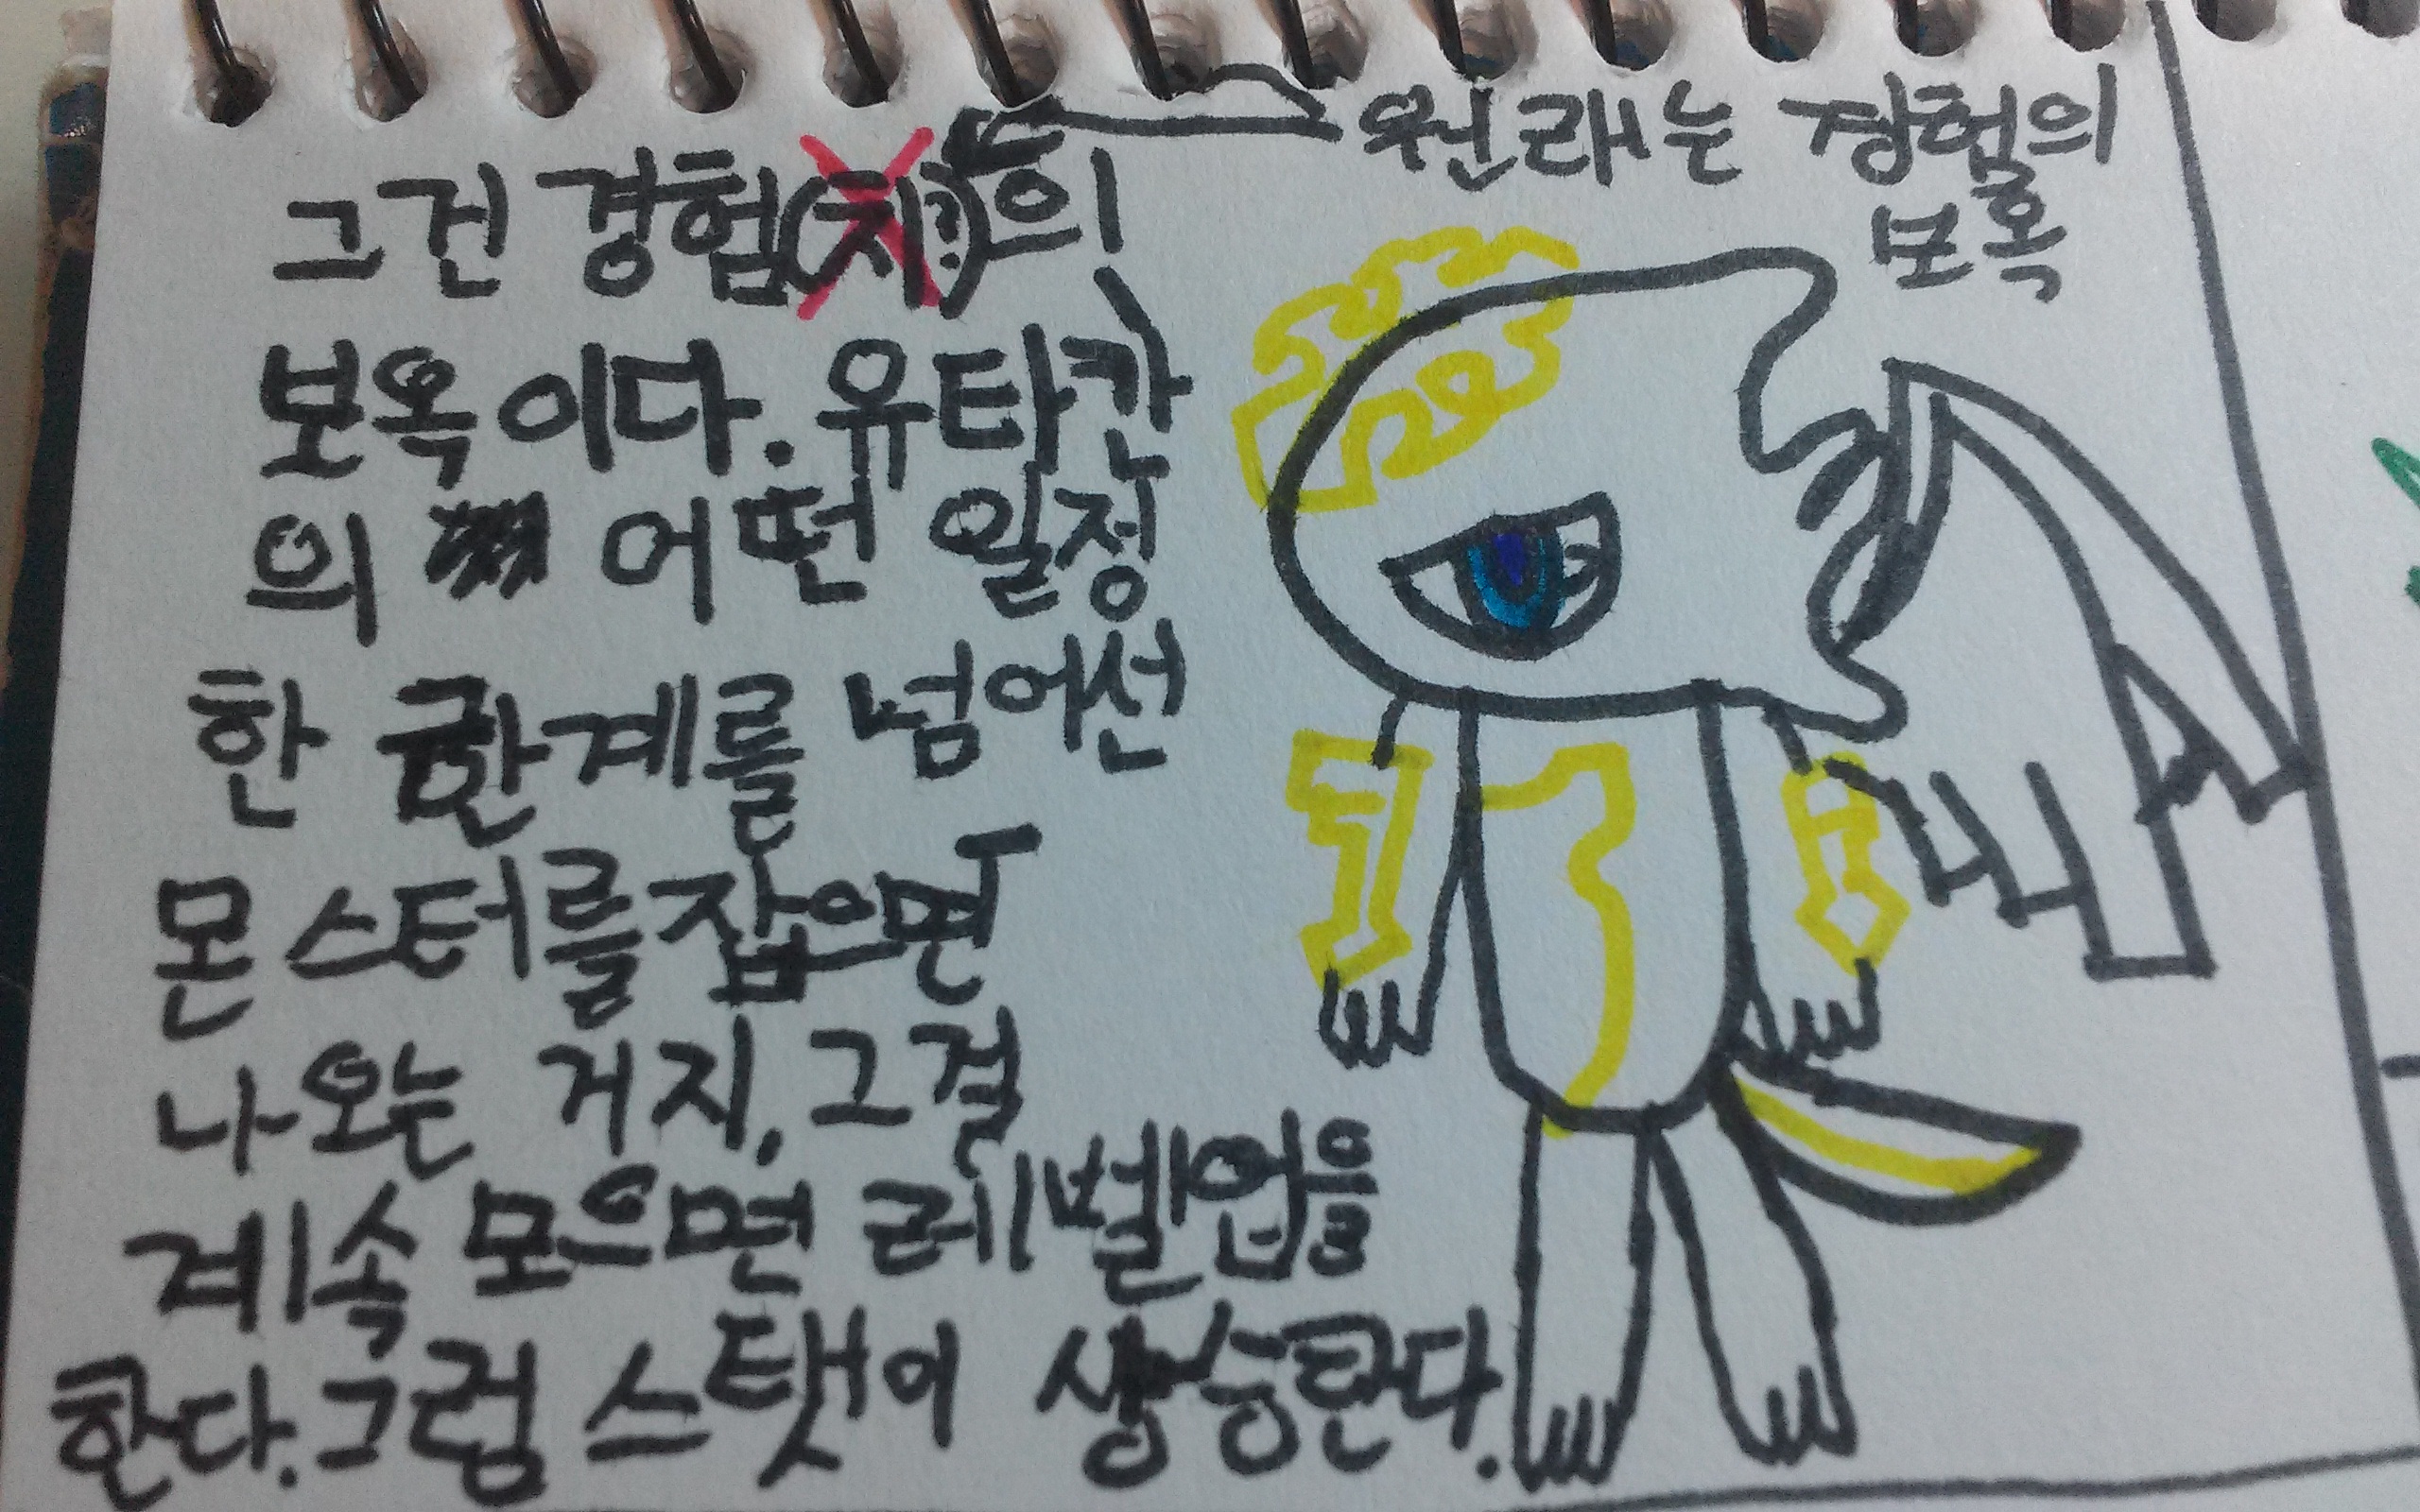 그건 경험(치?)의
보옥이다. 유타칸
의 어떤 일정
한 한계를 넘어선
몬스터를 잡으면
나오는 거지. 그걸
계속 모으면 레벨업을
한다. 그럼 스탯이 상승한다.
원래는 경험의
보옥